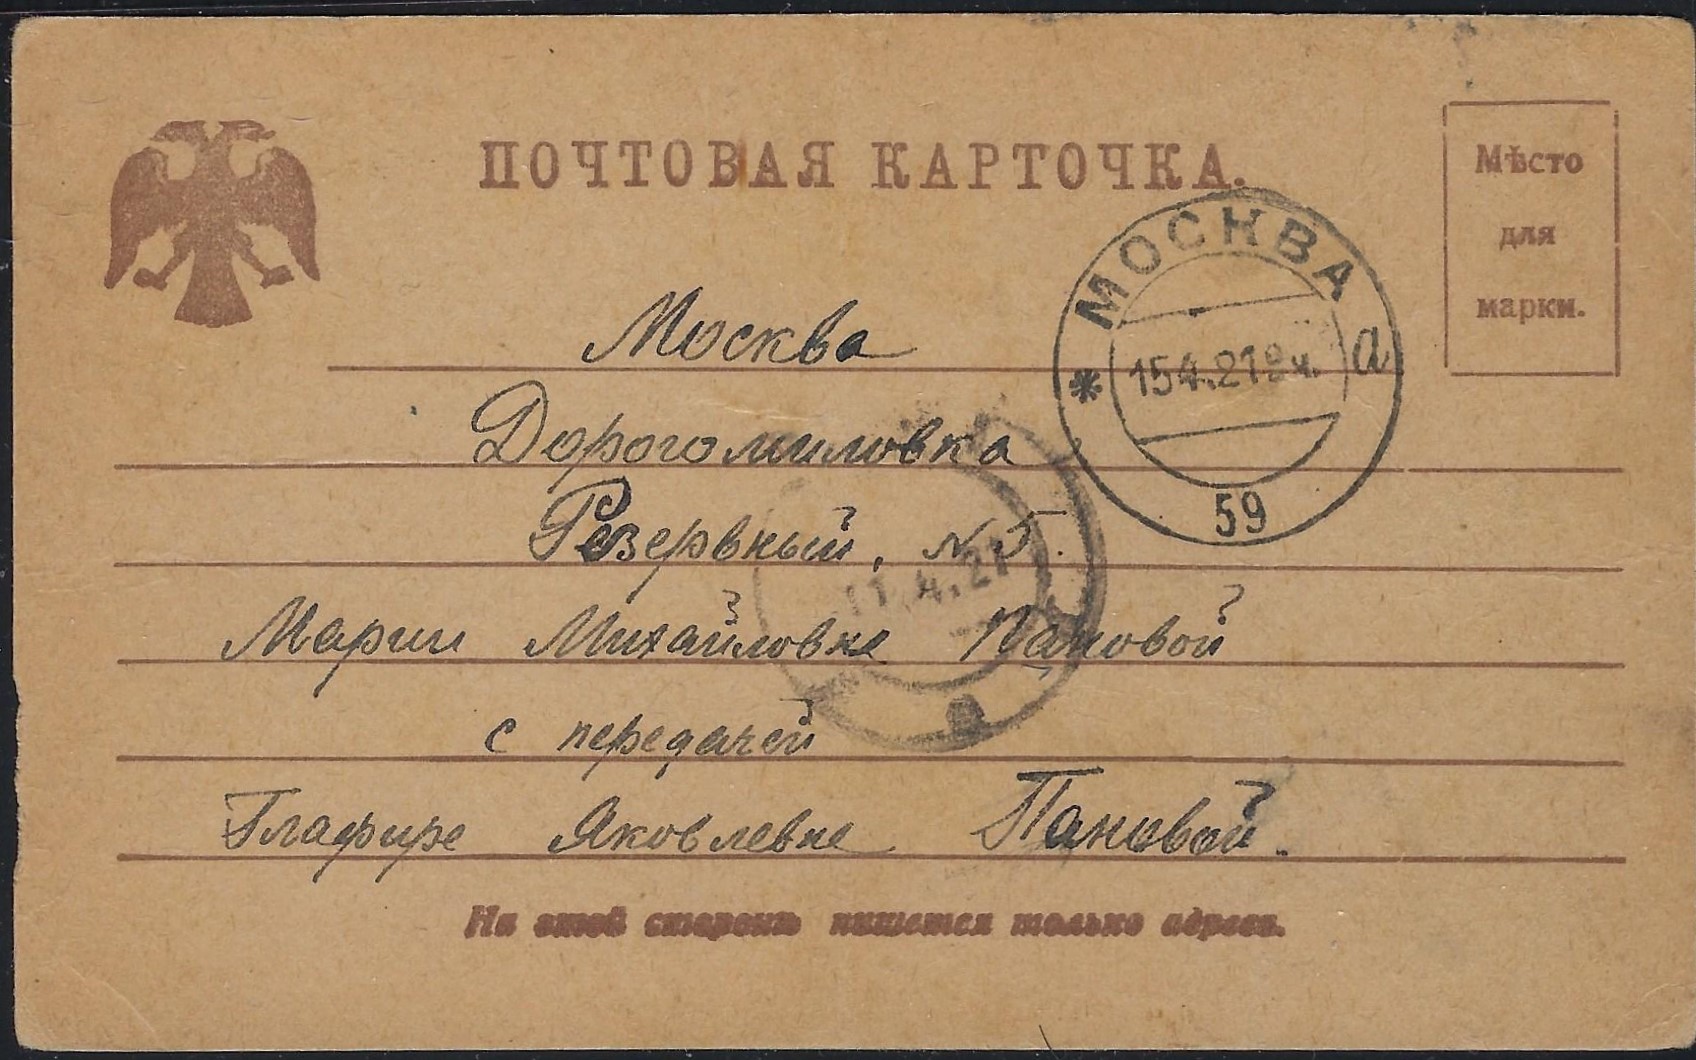 ПОЧТОВАЯ КАРТОЧКА.
Мѣсто
для
марки.
МОСКВА
* 15 4.21 9 ч. а
59
Москва
Дорогомиловка
Резервный, N. 5.
11.4.21
Марии Михайловне Пановой
с передачей
Глафире Яковлевне Пановой.
На этой сторонѣ пишется только адресъ.